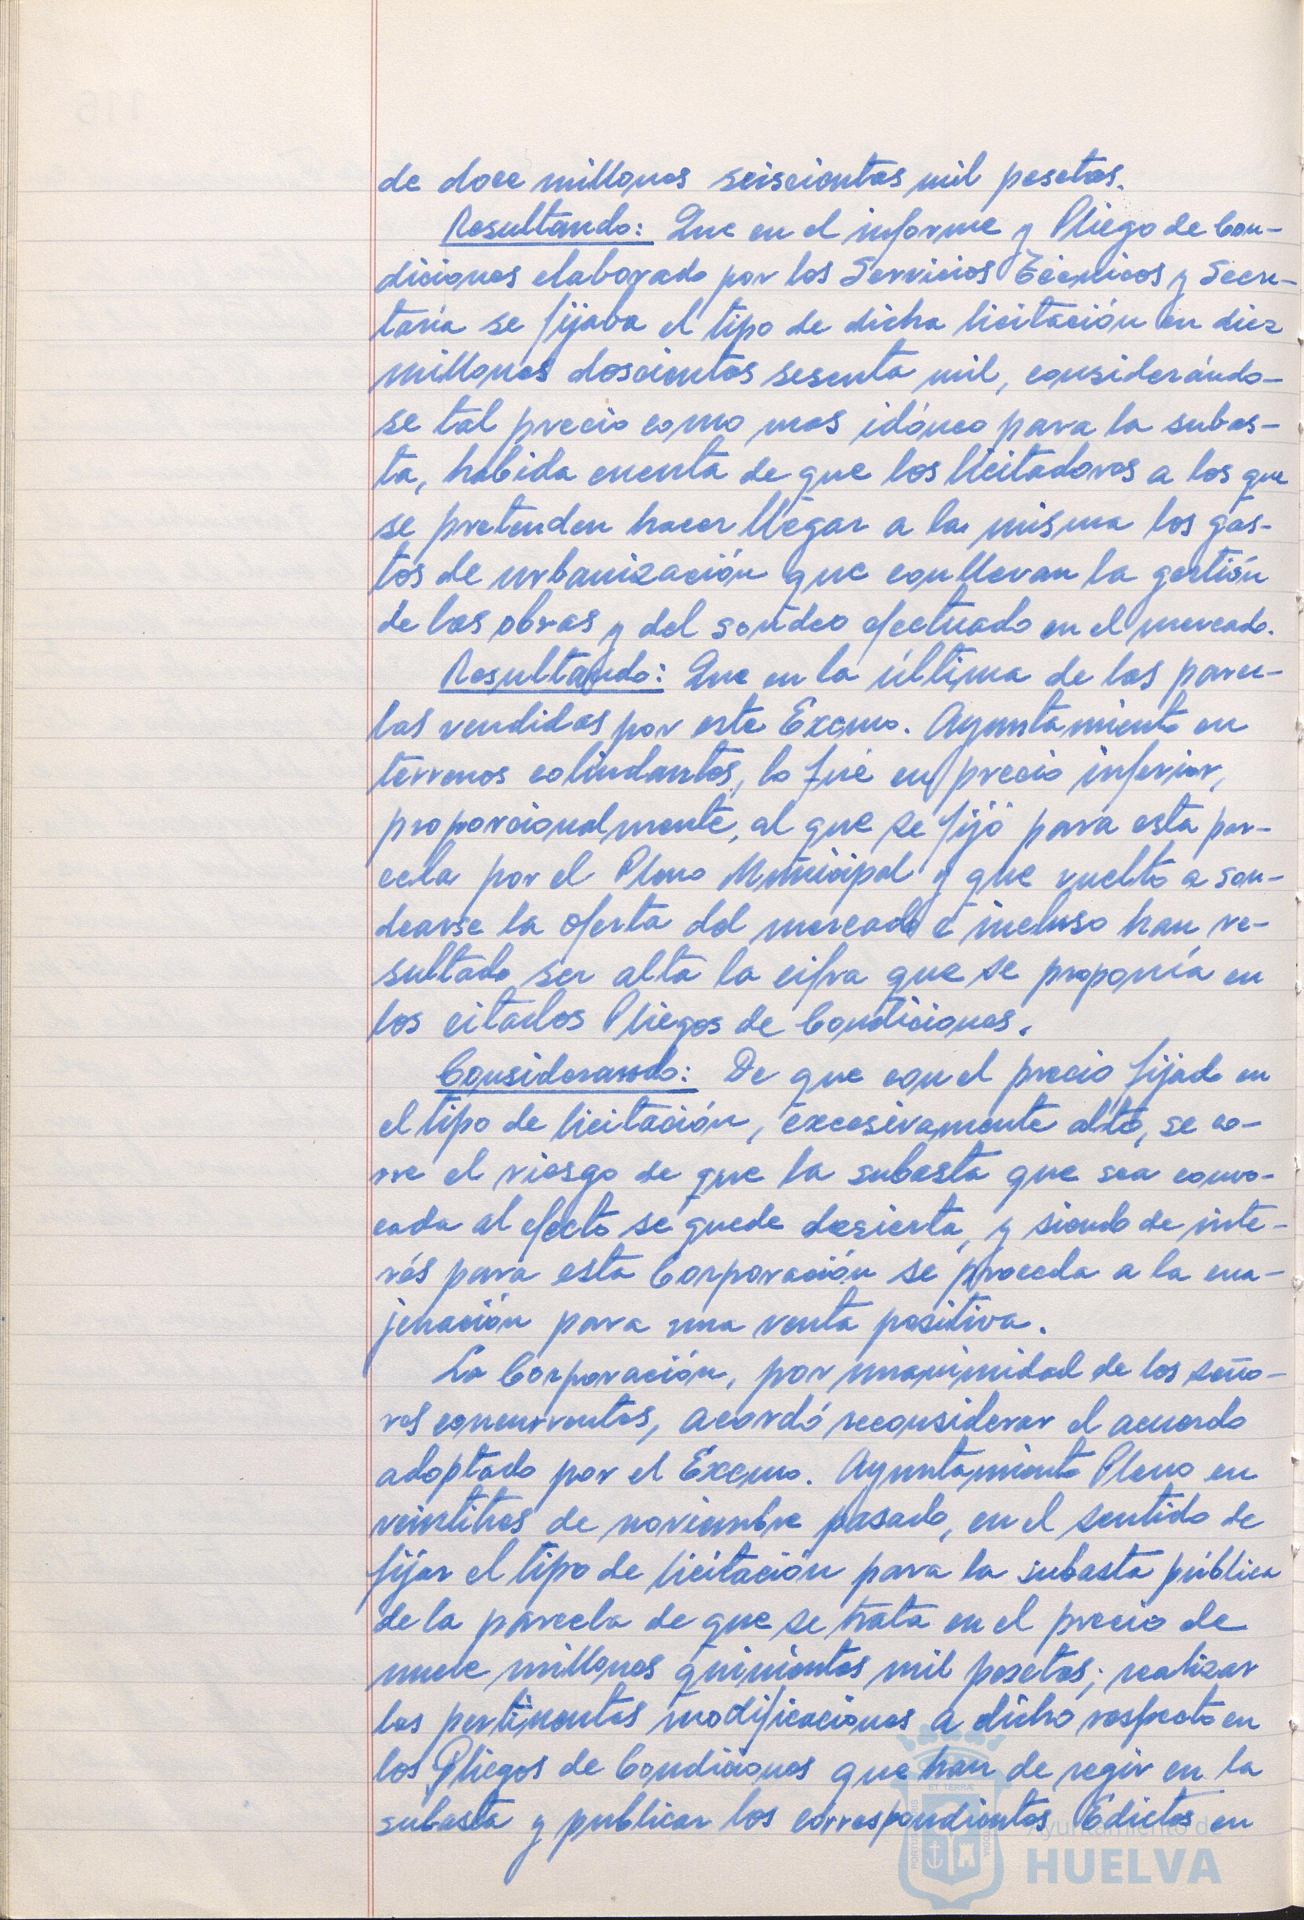 de doce millones seiscientas mil pesetas.
Resultando: Que en el informe y Pliego de Con-
diciones elaborado por los Servicios Técnicos y Secre-
taría se fijaba el tipo de dicha licitación en diez
millones doscientos sesenta mil, considerándo-
se tal precio como mas idóneo para la subas-
ta, habida cuenta de que los licitadores a los que
se pretenden hacer llegar a la misma los gas-
tos de urbanización que conllevan la gestión
de las obras y del sondeo efectuado en el mercado.
Resultando: Que en la última de las parce-
las vendidas por este Excmo. Ayuntamiento en
terrenos colindantes, lo fué en precio inferior,
proporcionalmente, al que se fijó para esta par-
cela por el Pleno Municipal y que vuelto a son-
dearse la oferta del mercado é incluso han re-
sultado ser alta la cifra que se proponía en
los citados Pliegos de Condiciones.
Considerando: De que con el precio fijado en
el tipo de licitación, excesivamente alto, se co-
rre el riesgo de que la subasta que sea convo-
cada al efecto se quede desierta, y siendo de inte-
rés para esta Corporación se proceda a la ena-
jenación para una venta positiva.
La Corporación, por unanimidad de los seño-
res concurrentes, acordó reconsiderar el acuerdo
adoptado por el Excmo. Ayuntamiento Pleno en
veintitres de noviembre pasado, en el sentido de
fijar el tipo de licitación para la subasta pública
de la parcela de que se trata en el precio de
nueve millones quinientas mil pesetas; realizar
las pertinentes modificaciones a dicho respecto en
los Pliegos de Condiciones que han de regir en la
subasta y publicar los correspondientes Edictos en
Ayuntamiento de
HUELVA